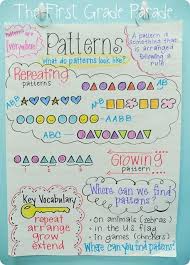 The First Grade Parade
Patterns are everywhere!
Patterns
what do patterns look like?
A pattern is something that is arranged following a rule.
Repeating
patterns
AB
AAB
ABB
AABB
ABC
Growing
pattern
Key Vocabulary
repeat
arrange
grow
extend
Where can we find
patterns?
- on animals (zebras)
- in the U.S. flag
- in games (checkers)
Where can you find patterns?